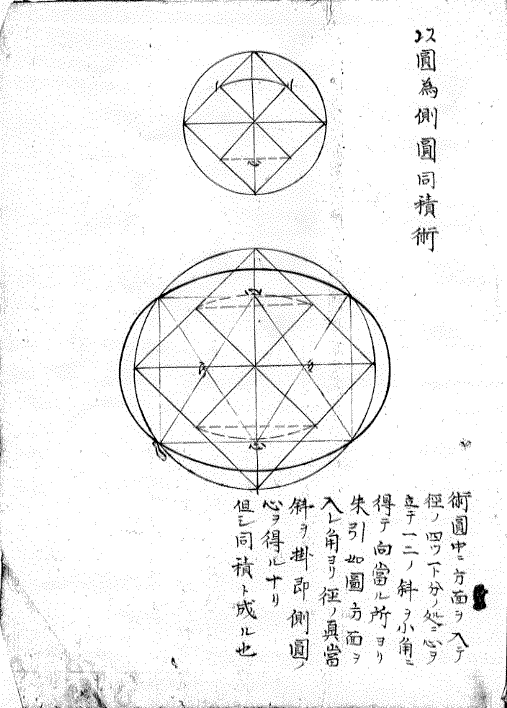 以圓為側圓同積術
一
二
心
心
心
術圓中ニ方面ヲ入テ
径ノ四ツ下分ノ処ニ心ヲ
立テ一二ノ斜ヲ小角ニ
得テ向當ル所ヨリ
朱引如圖方面ヲ
入レ角ヨリ径ノ真當
斜ヲ掛即側圓ノ
心ヲ得ルナリ
但シ同積ト成ル也